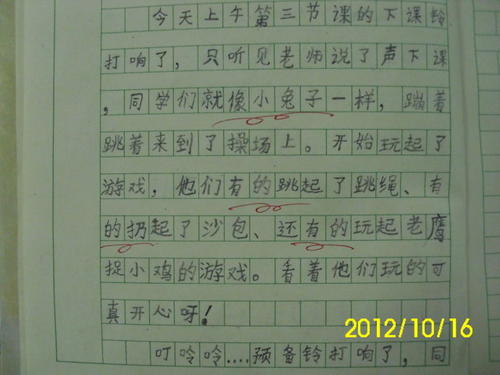 今天上午第三节课的下课铃
打响了，只听见老师说了声下课
，同学们就像小兔子一样，蹦着
跳着来到了操场上。开始玩起了
游戏，他们有的跳起了跳绳、有
的扔起了沙包、还有的玩起老鹰
捉小鸡的游戏。看着他们玩的可
真开心呀！
叮呤呤....预备铃打响了，同
2012/10/16